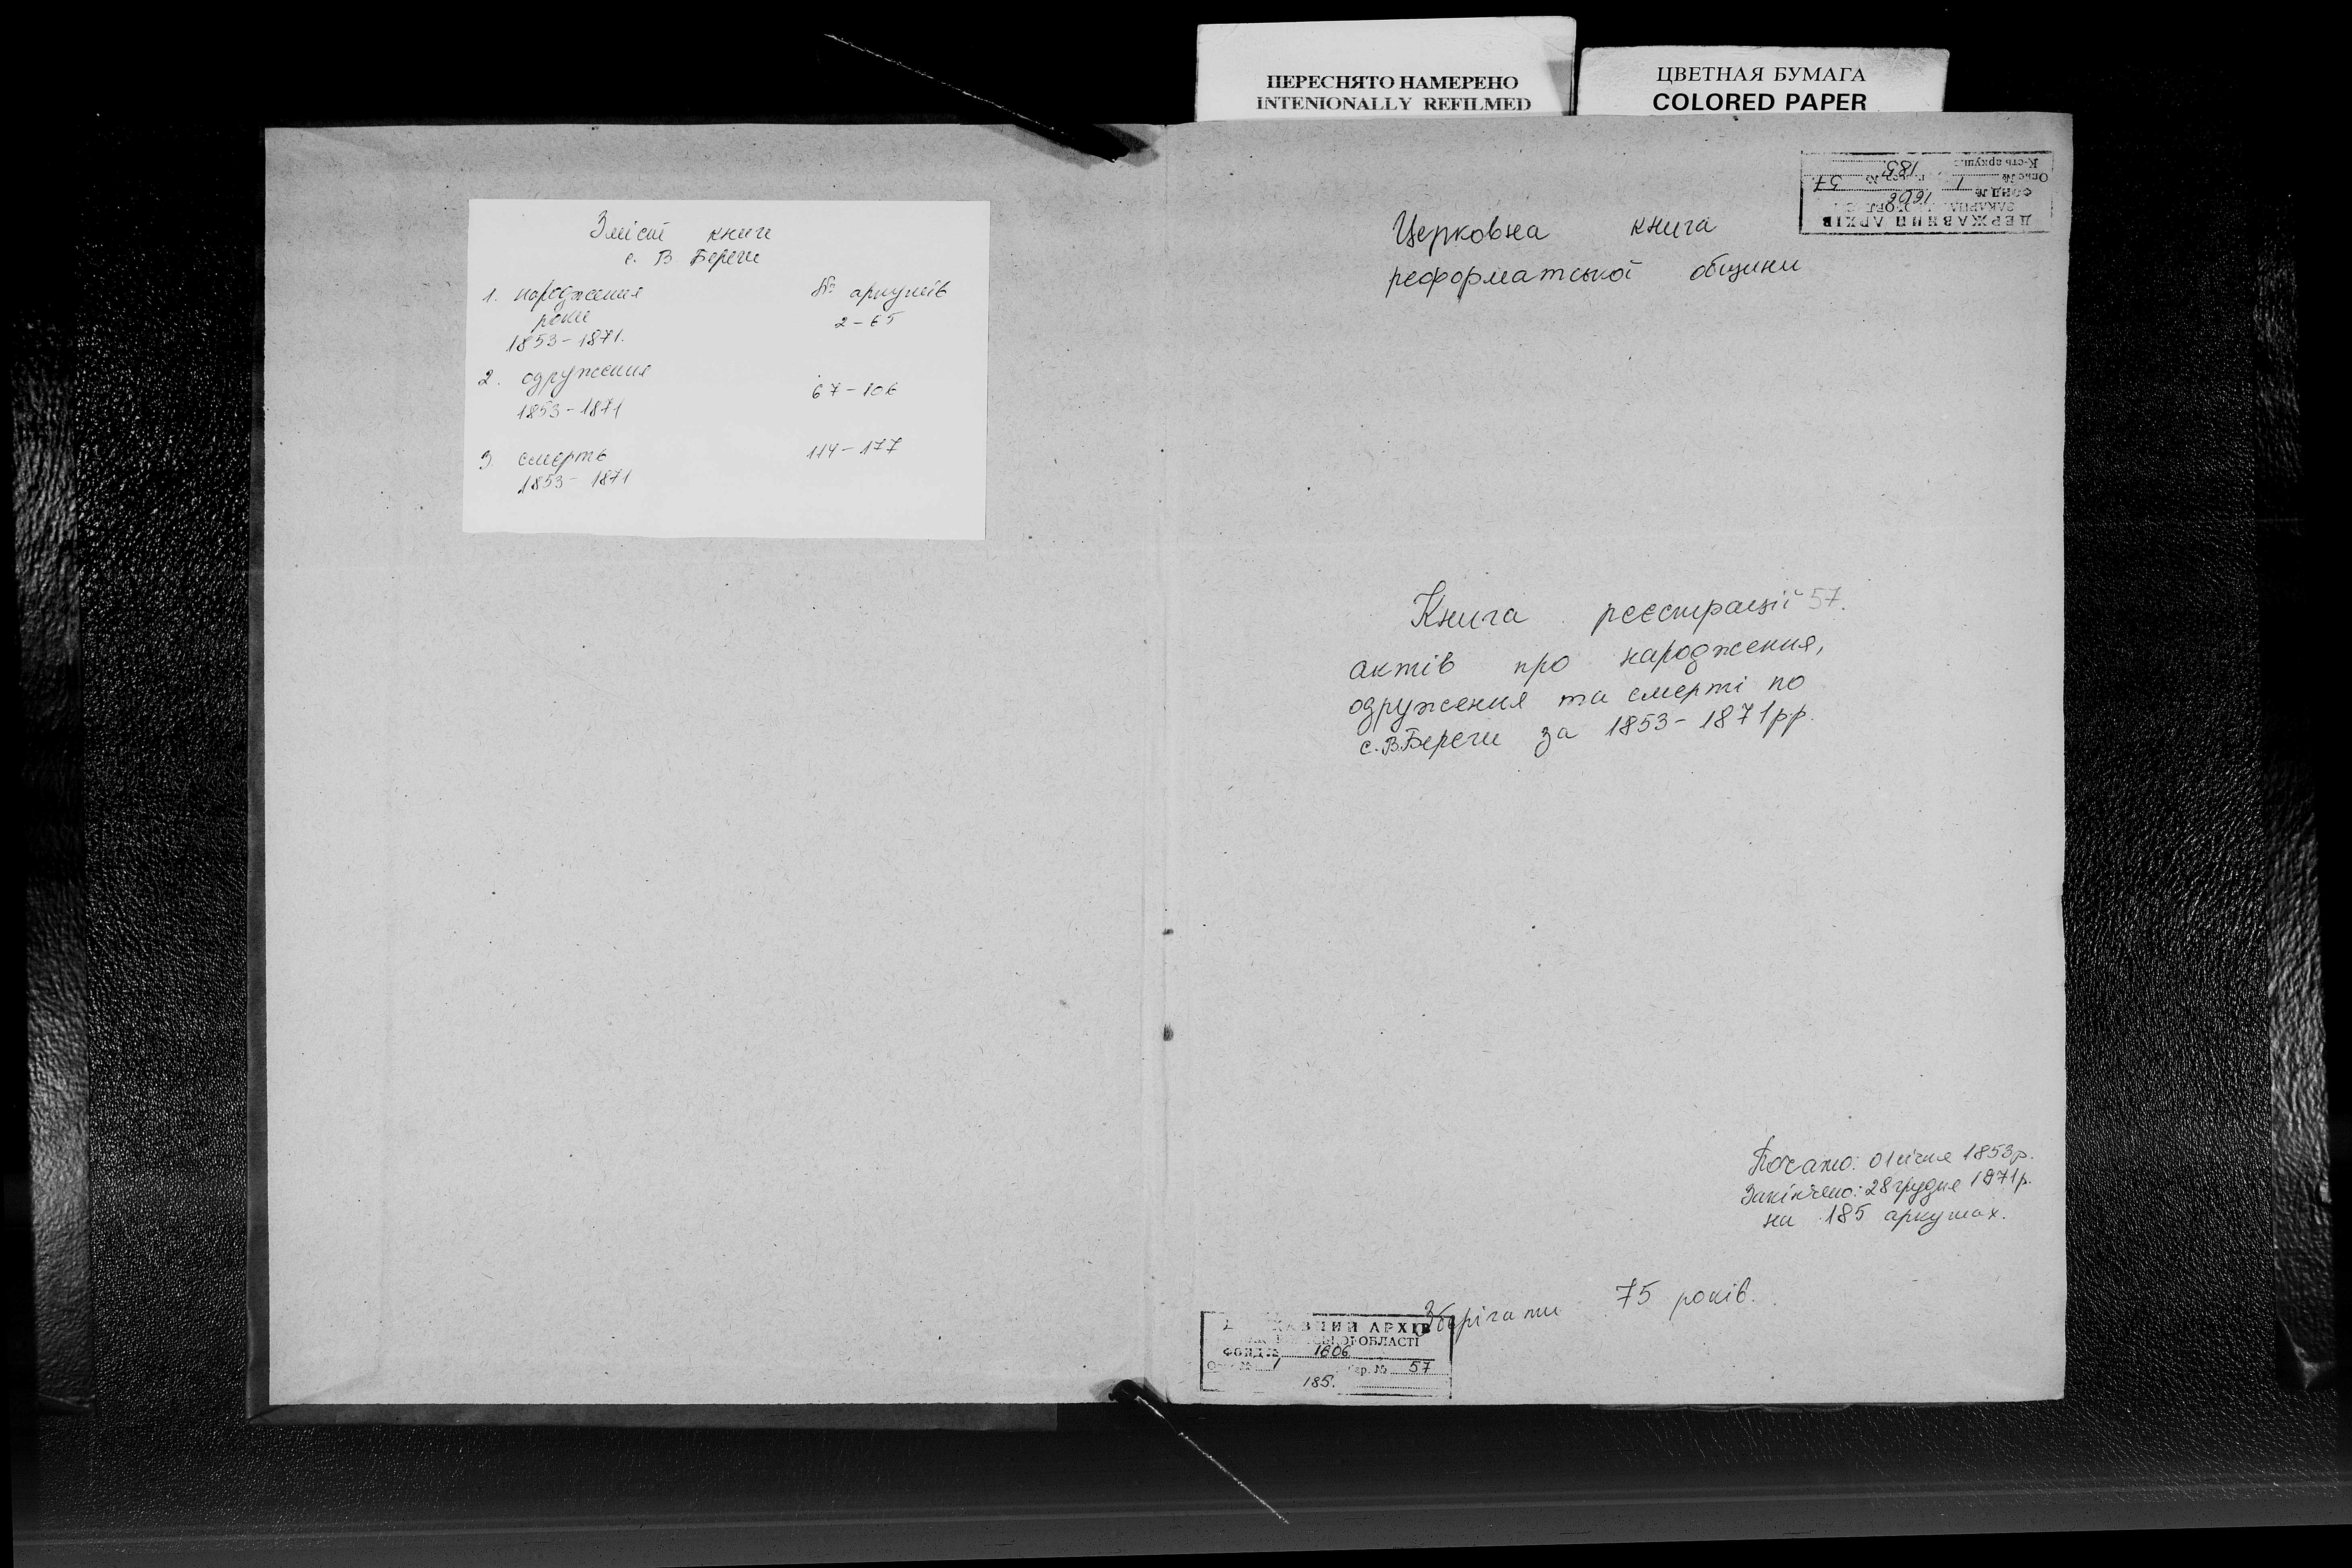 ПЕРЕСНЯТО НАМЕРЕНО
INTENIONALLY REFILMED
ЦВЕТНАЯ БУМАГА
COLORED PAPER
Зміст книги
с. В Береги
1. народження № аркушів
роки 2-65
1853-1871.
2. одруження
67-106
1853-1871
3. смерть 114-177
1853-1871
ДЕРЖАВНИЙ АРХІВ
ФОНД № 1606
Опис № 1 № 57
К-сть аркуш. 185
Церковна книга
реформатської общини
Книга реєстрації 57.
актів про народження,
одруження та смерті по
с.В.Береги за 1853-1871рр.
Почато: 01 січня 1853р.
Закінчено: 28 грудня 1871р.
на 185 аркушах.
Зберігати 75 років.
АРХІВ
ОБЛАСТІ
ФОНД № 1606
1 № 57
185.